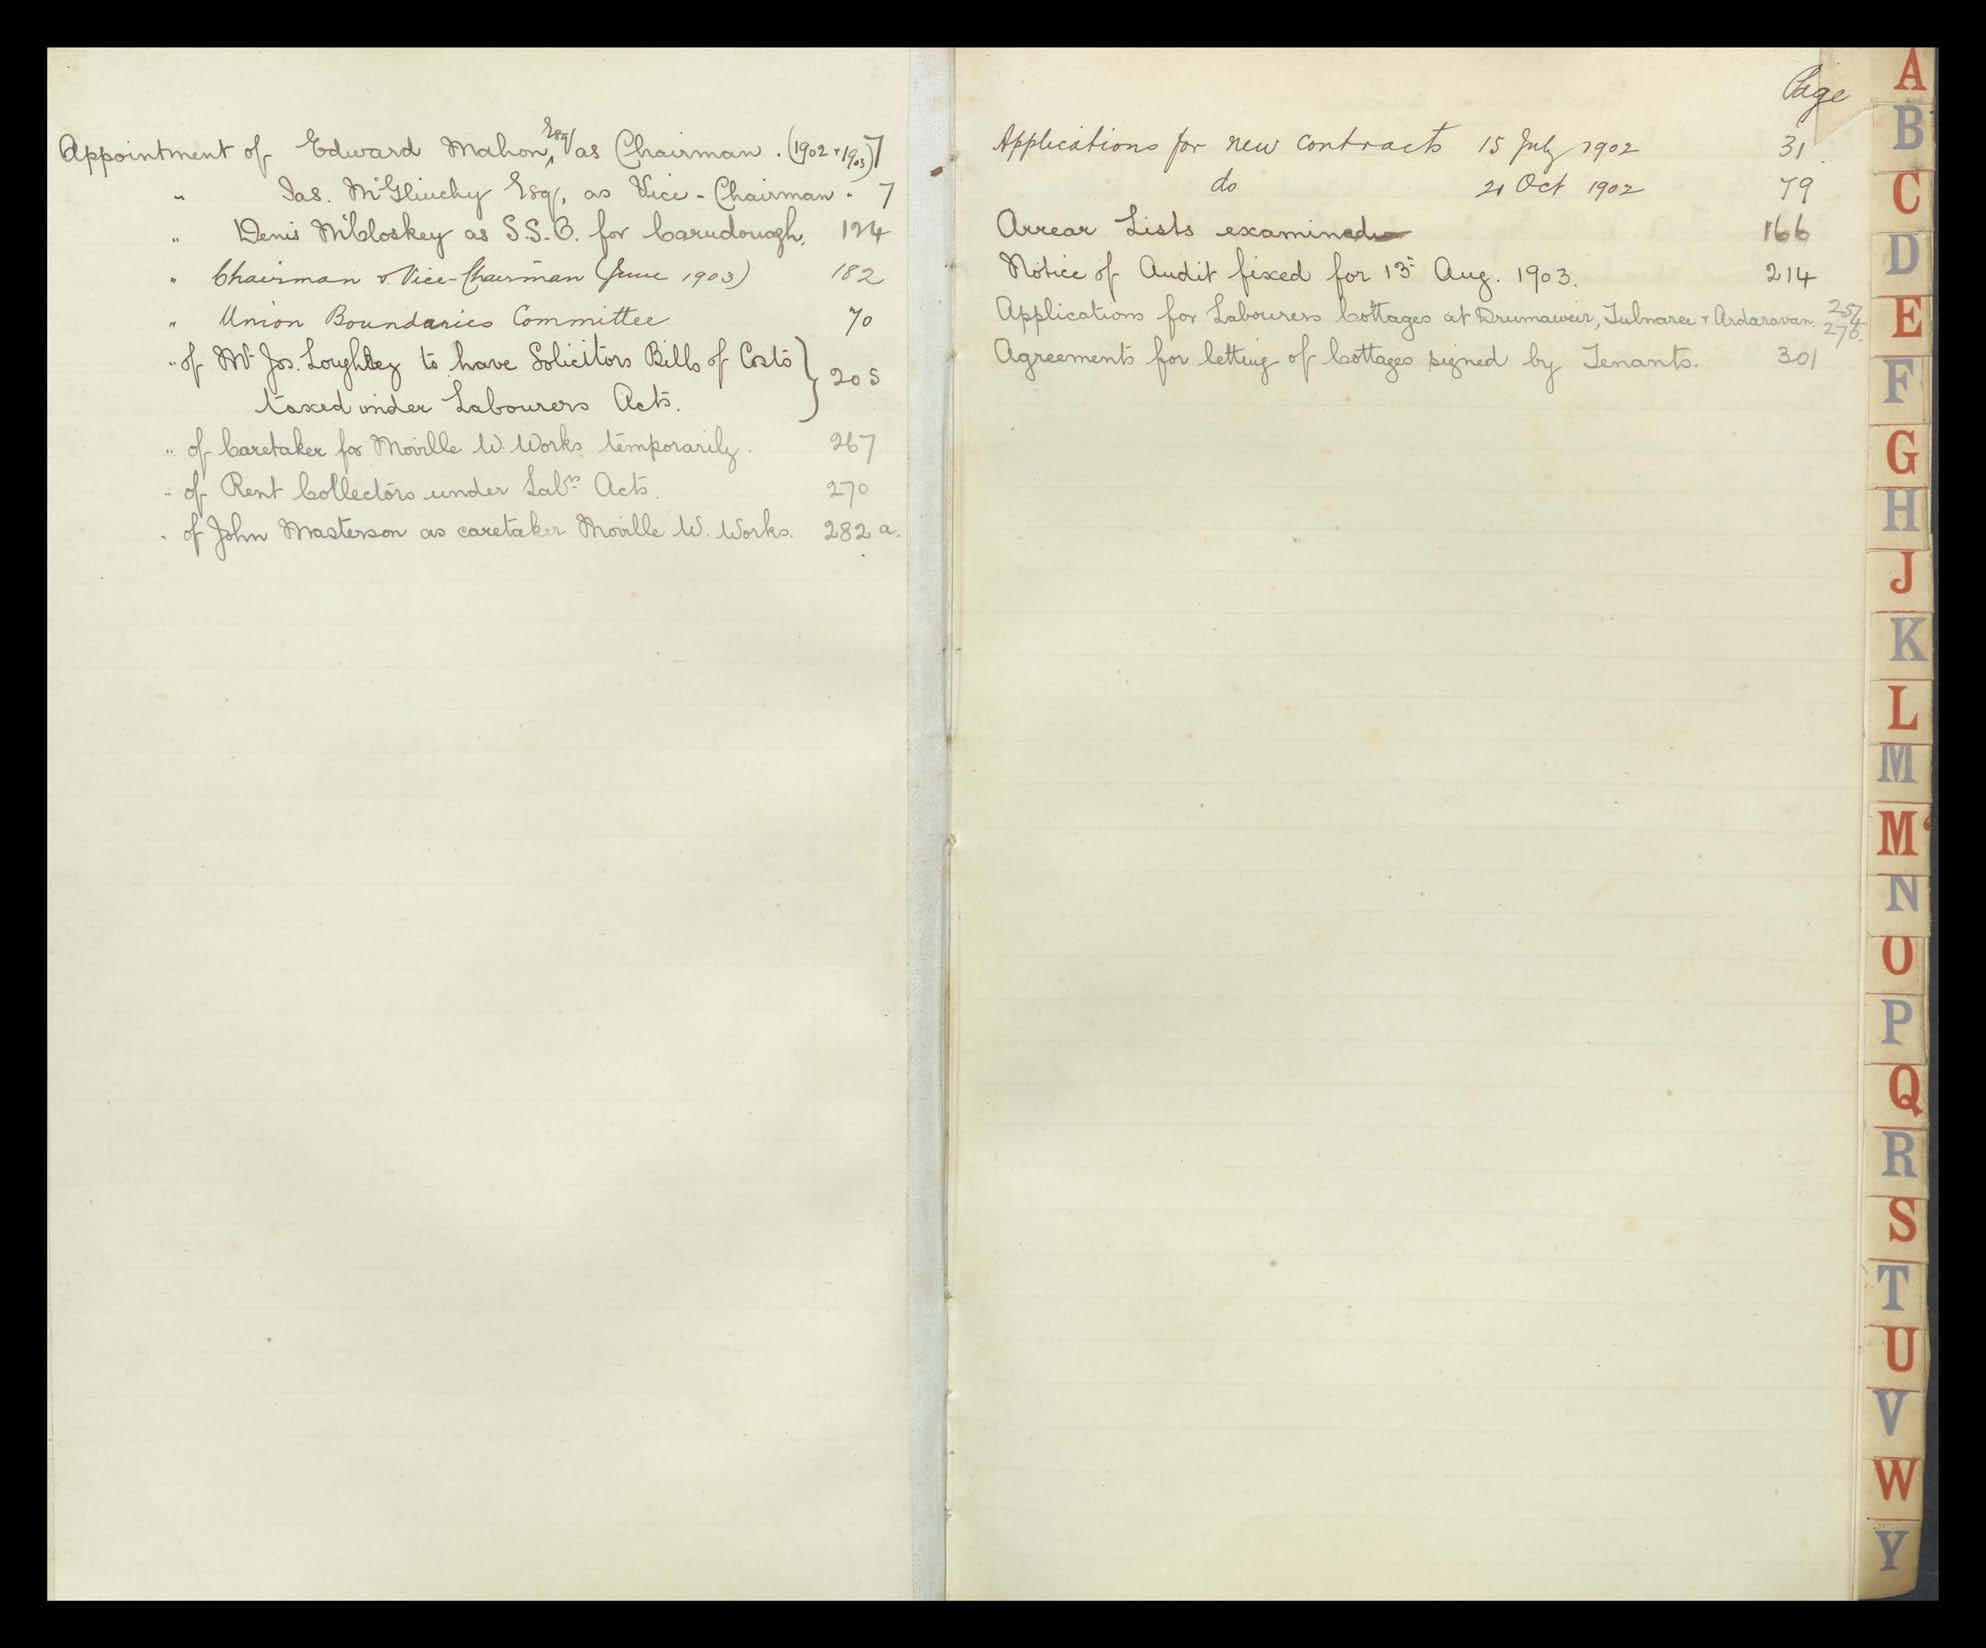 Appointment of Edward Mahon, Esq, as Chairman. (1902 + 1903) 7
" Jas. McGlinchy Esq, as Vice-Chairman. 7
" Denis McCloskey as S.S.O. for Carndonagh, 124
" Chairman & Vice-Chairman (June 1903) 182
" Union Boundaries Committee 70
" of Mr Jos. Loughrey to have Solicitors Bills of Costs } 205
taxed under Labourers Acts.
" of Caretaker for Moville W. Works temporarily. 267
" of Rent Collectors under Labrs Acts. 270
" of John Masterson as caretaker Moville W. Works. 282 a.
Page
Applications for new contracts 15 July 1902 31
do 21 Oct 1902 79
Arrear Lists examined 166
Notice of Audit fixed for 13th Aug. 1903. 214
Applications for Labourers Cottages at Drumaweir, Tulnaree + Ardaravan. 257
276.
Agreements for letting of Cottages signed by Tenants. 301
A
B
C
D
E
F
G
H
J
K
L
M
Mc
N
O
P
Q
R
S
T
U
V
W
Y